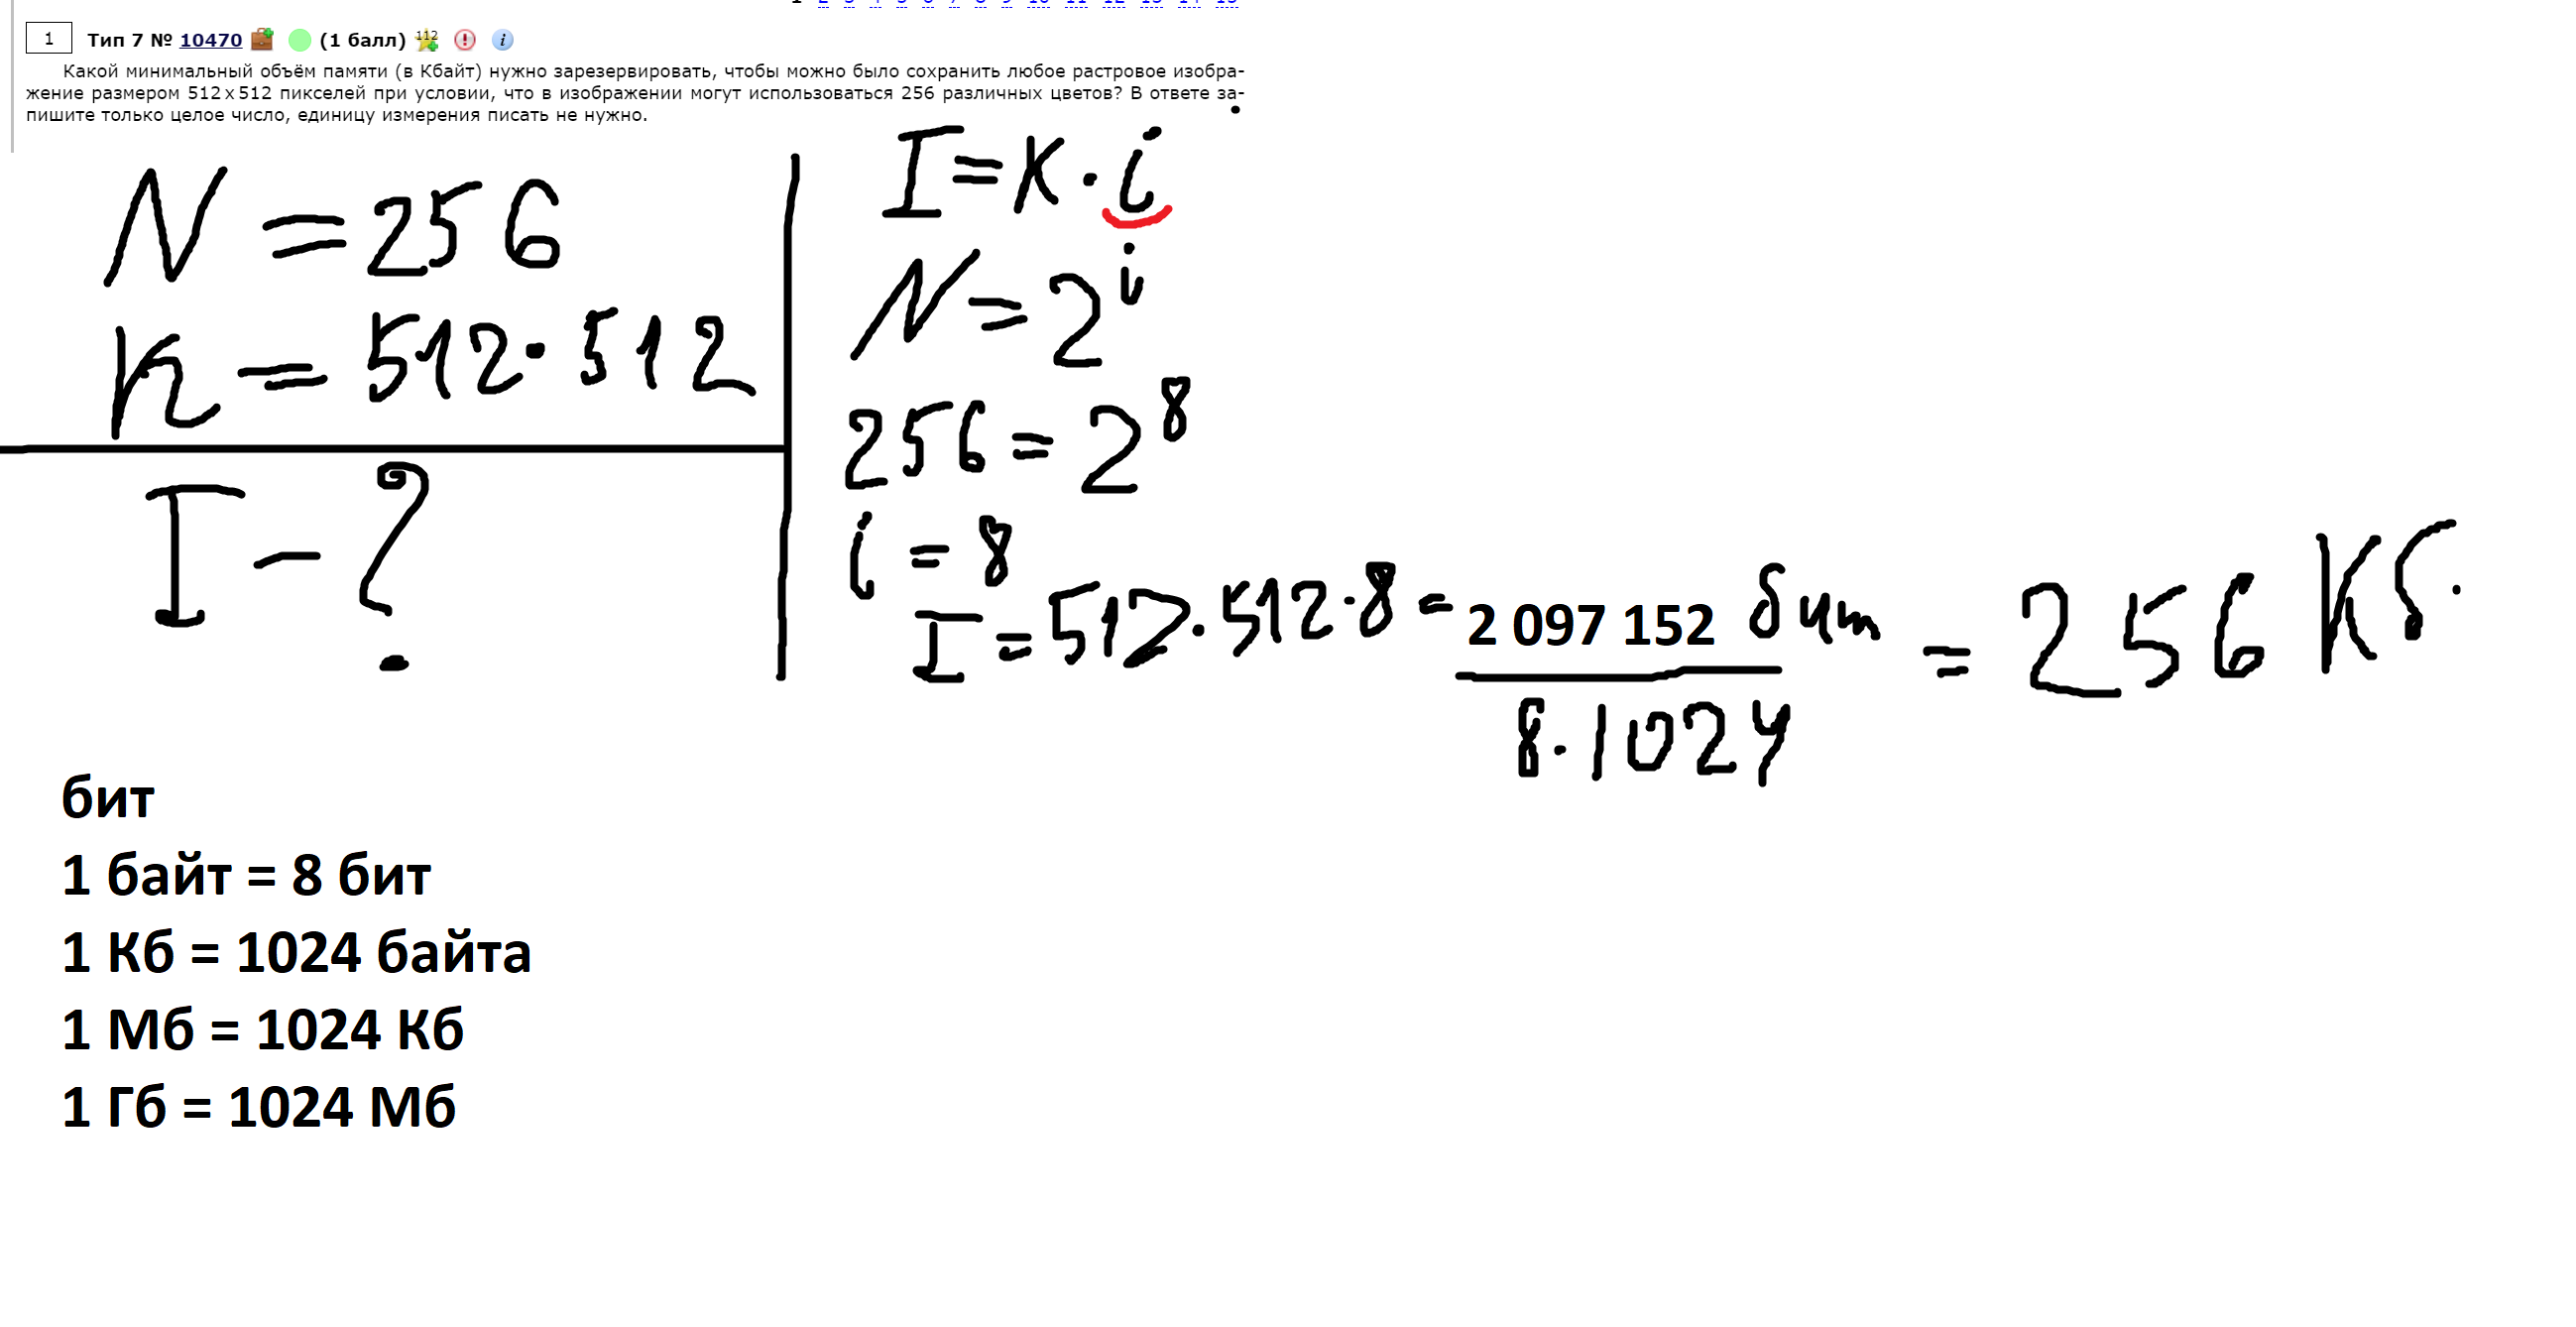 1 2 3 4 5 6 7 8 9 10 11 12 13 14 15
1 Тип 7 № 10470 (1 балл) 112
Какой минимальный объём памяти (в Кбайт) нужно зарезервировать, чтобы можно было сохранить любое растровое изобра-
жение размером 512 x 512 пикселей при условии, что в изображении могут использоваться 256 различных цветов? В ответе за-
пишите только целое число, единицу измерения писать не нужно.
N = 256
K = 512 · 512
I - ?
I = K · i
N = 2^i
256 = 2^8
i = 8
I = 512 · 512 · 8 = 2 097 152 бит = 256 Кб.
8 · 1024
бит
1 байт = 8 бит
1 Кб = 1024 байта
1 Мб = 1024 Кб
1 Гб = 1024 Мб